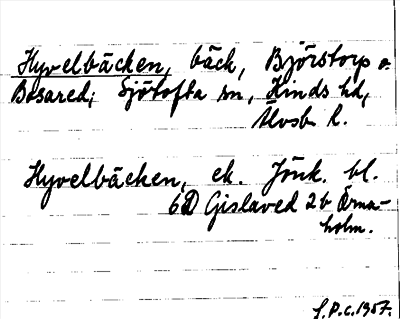 Hyvelbäcken, bäck, Björstorp o.
Bosared; Sjötofta sn, Kinds hd,
Älvsb. l.
Hyvelbäcken, ek. Jönk. bl.
6D Gislaved 2b Örna-
holm.
S.P.c. 1957.